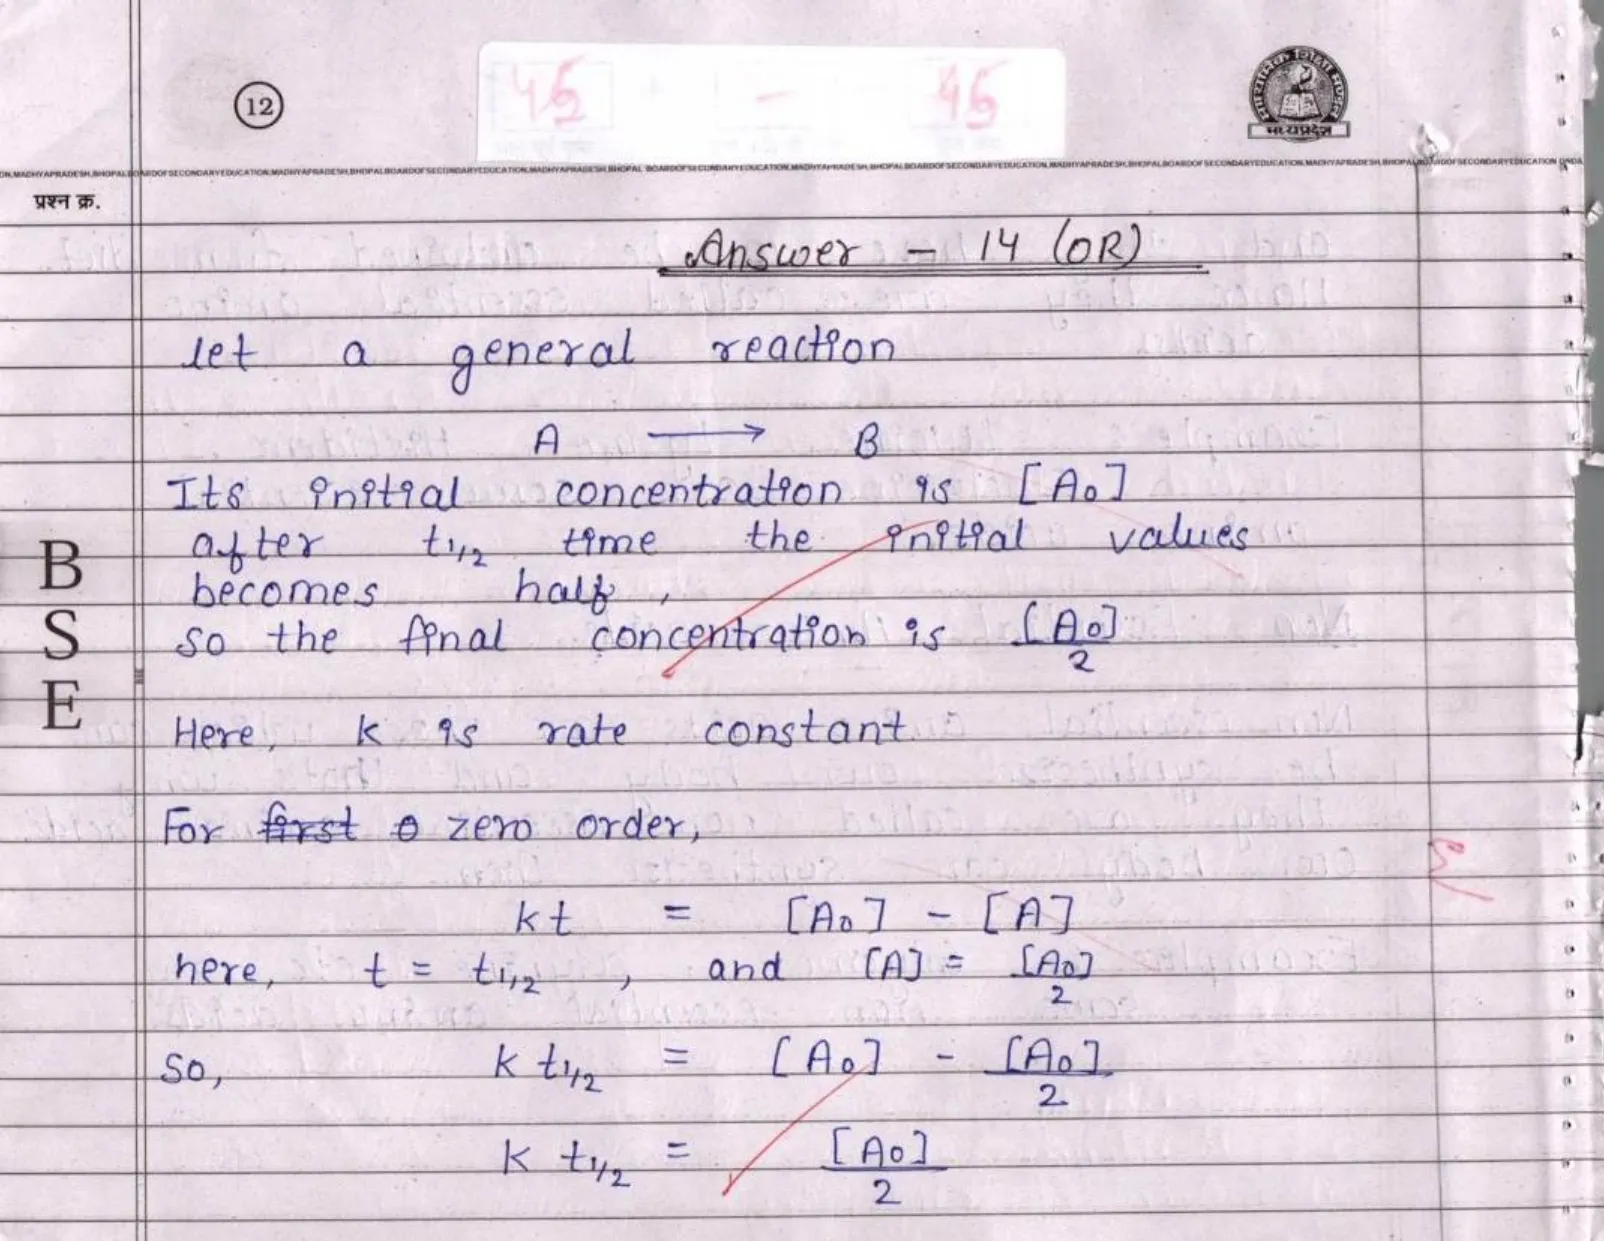 12
45 - 45
माध्यमिक शिक्षा मण्डल
मध्यप्रदेश
BOARD OF SECONDARY EDUCATION, MADHYA PRADESH, BHOPAL
प्रश्न क्र.
Answer - 14 (OR)
let a general reaction
A ⟶ B
Its initial concentration is [A₀]
after t1/2 time the initial values
becomes half,
so the final concentration is [A₀]/2
Here, k is rate constant
For first o zero order,
kt = [A₀] - [A]
here, t = t1/2, and [A] = [A₀]/2
so, k t1/2 = [A₀] - [A₀]/2
k t1/2 = [A₀]/2
B
S
E